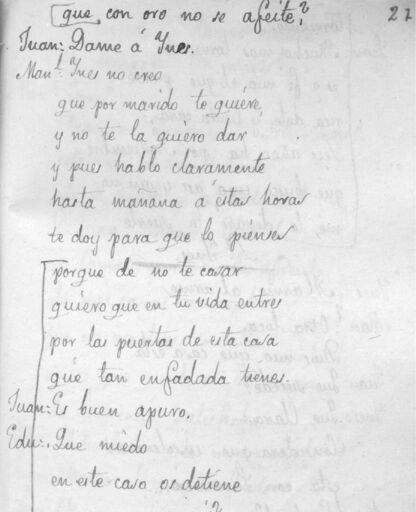 que con oro no se afeite? 27
Juan: Dame á Ynes.
Man!: Ynes no creo
que por marido te quiere
y no te la quiero dar
y pues hablo claramente
hasta mañana á estas horas
te doy para que lo pienses
porque de no te casar
quiero que en tu vida entres
por las puertas de esta casa
que tan enfadada tienes.
Juan: Es buen apuro.
Edu: Que miedo
en este caso os detiene
?